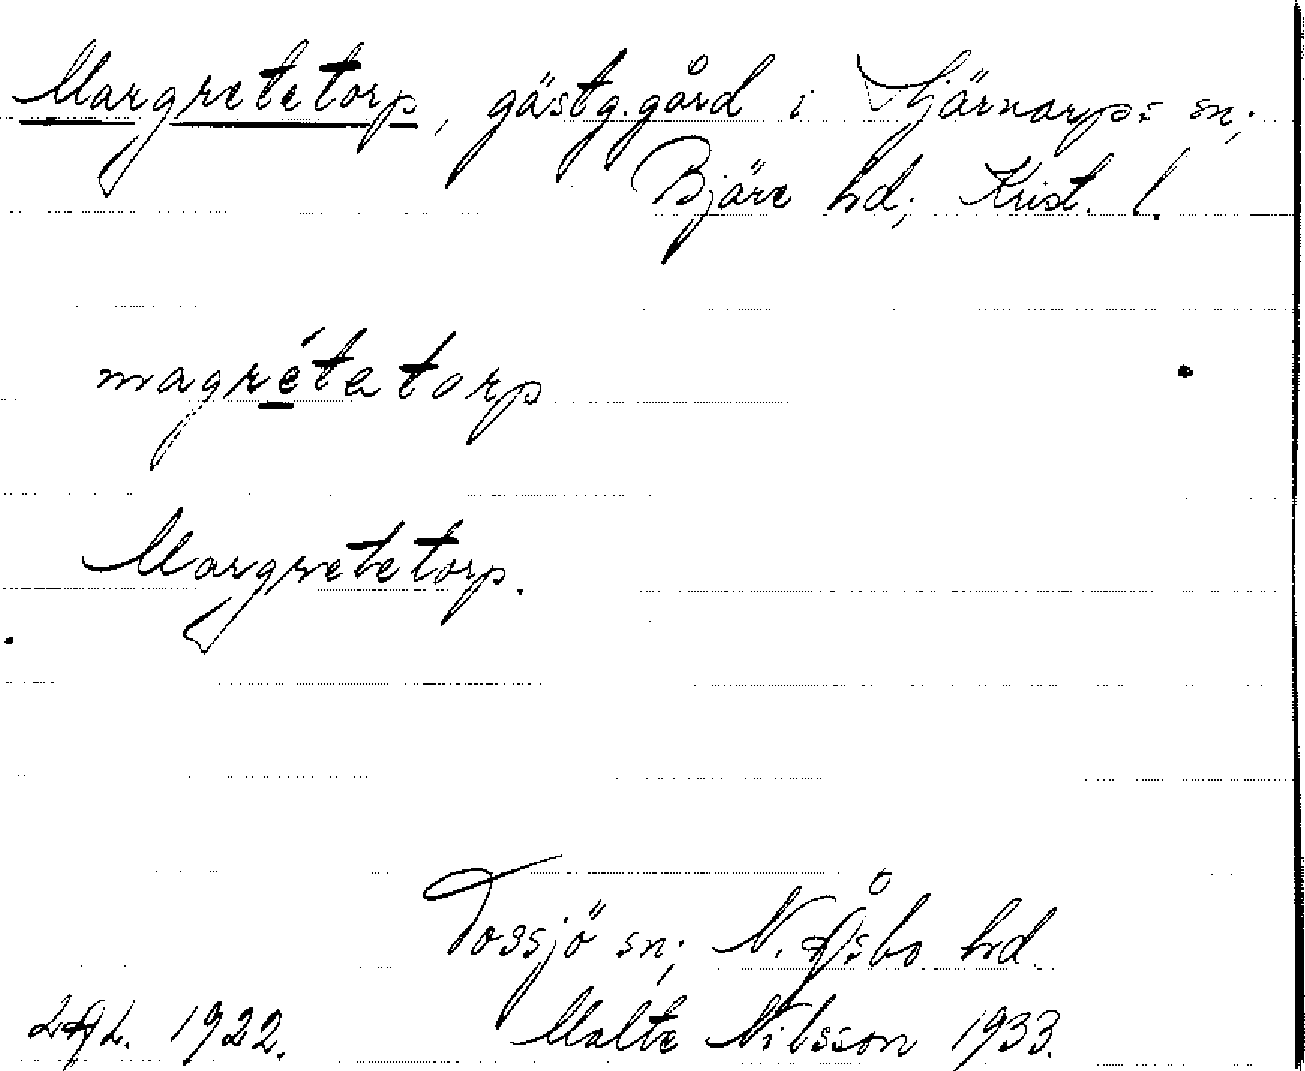 Margretetorp, gästg.gård i Hjärnarps sn;
Bjäre hd; Krist. l.
magrétatorp
Margretetorp.
Tossjö sn; N. Åsbo hd.
LAL. 1922. Malte Nilsson 1933.